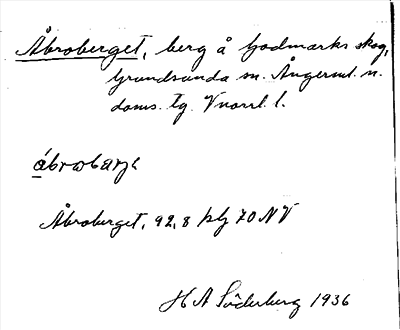 Åbroberget, berg å Godmarks skog,
Grundsunda sn. Ångerml. n.
doms. tg. Vnorrl. l.
åbrobærje
Åbroberget, 92,8 blj 70 NV
H A Söderberg 1936